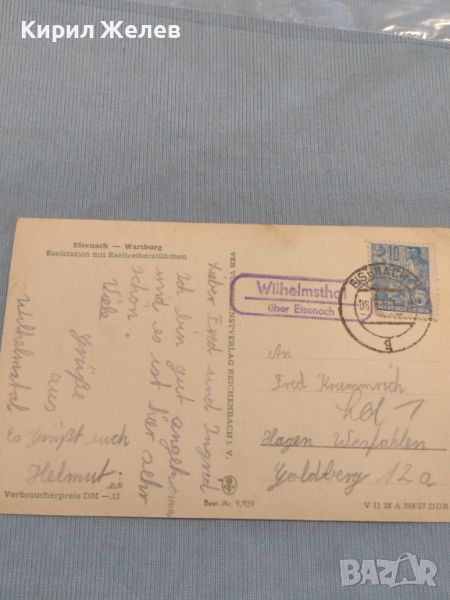 Кирил Желев
Eisenach — Wartburg
Eselstation mit Eseltreiberstübchen
Lieber Fred und Ingrid
Ich bin gut angekommen
und es ist hier sehr
schön.
Viele
Grüße
aus
Wilhelmstal
Es grüßt euch
Helmut.
Verbraucherpreis DM —,15
VEB KUNSTVERLAG REICHENBACH I. V.
Best.-Nr. 9/939
Wilhelmsthal
über Eisenach
EISENACH
g
10
An
Fred Krummrich
Hagen Wesfahlen
Goldberg 12a
V 11 28 A 248/57 DDR
bazar.bg